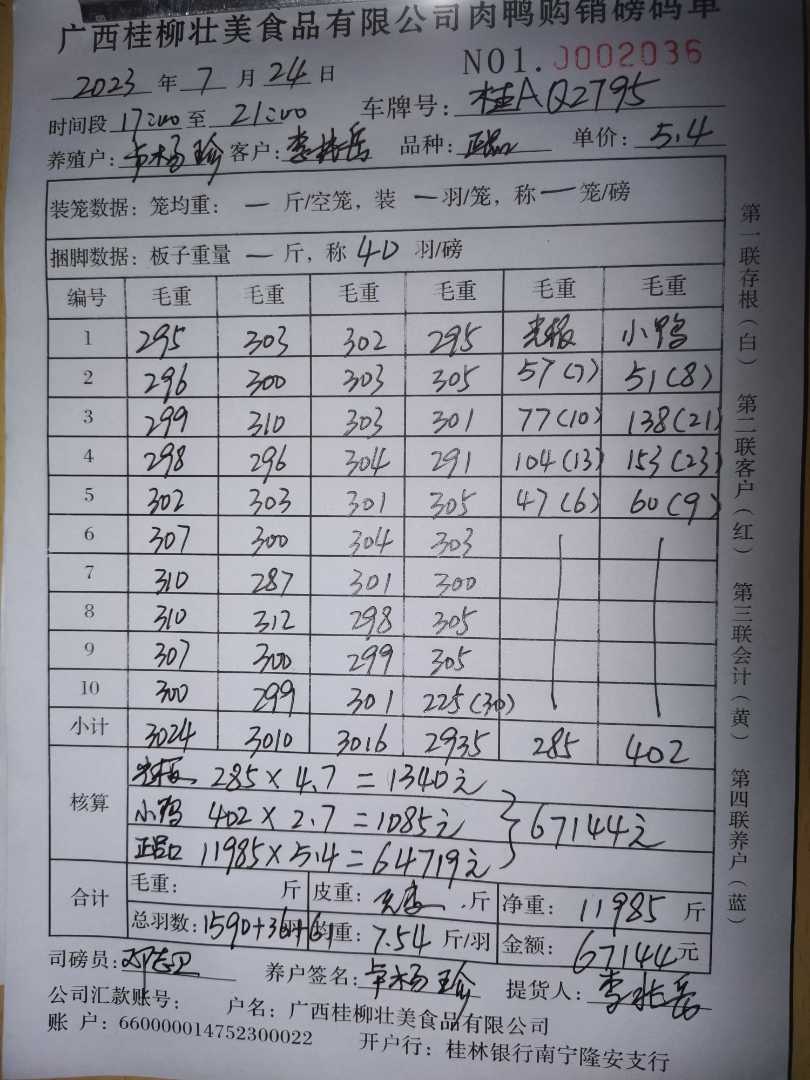 广西桂柳壮美食品有限公司肉鸭购销磅码单
NO1. 0002036
2023 年 7 月 24 日
时间段 17:00 至 21:00 车牌号: 桂A Q2795
养殖户: 卓杨珍 客户: 李兆岳 品种: 正品 单价: 5.4
装笼数据: 笼均重: — 斤/空笼, 装 — 羽/笼, 称 — 笼/磅
捆脚数据: 板子重量 — 斤, 称 40 羽/磅
编号 毛重 毛重 毛重 毛重 毛重 毛重
1 295 303 302 295 光板 小鸭
2 296 300 303 305 57(7) 51(8)
3 299 310 303 301 77(10) 138(21)
4 298 296 304 291 104(13) 153(23)
5 302 303 301 305 47(6) 60(9)
6 307 300 304 303
7 310 287 301 300
8 310 312 298 305
9 307 300 299 305
10 300 299 301 225(30)
小计 3024 3010 3016 2935 285 402
核算 光板 285×4.7=1340元
小鸭 402×2.7=1085元
正品 11985×5.4=64719元
67144元
合计 毛重: 斤 皮重: 斤 净重: 11985 斤
总羽数: 1590+36+61 均重: 7.54 斤/羽 金额: 67144 元
司磅员: 养户签名: 卓杨珍 提货人: 李兆岳
公司汇款账号: 户名: 广西桂柳壮美食品有限公司
账 户: 660000014752300022 开户行: 桂林银行南宁隆安支行
第一联存根(白) 第二联客户(红) 第三联会计(黄) 第四联养户(蓝)